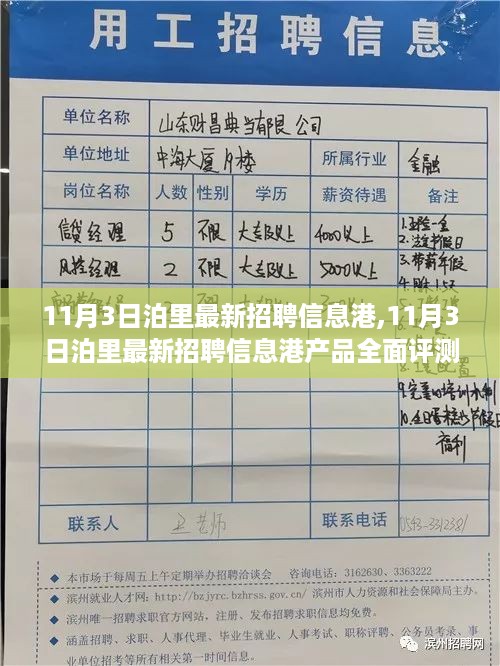 用工招聘信息
单位名称 山东财昌典当有限公司
单位地址 中海大厦19楼 所属行业 金融
岗位名称 人数 性别 学历 薪资待遇 备注
信贷经理 5 不限 大专及以上 4000以上 1.五险一金
2.法定节假日
风控经理 2 不限 大专及以上 5000以上 3.带薪年假
11月3日泊里最新招聘信息港,11月3
日泊里最新招聘信息港产品全面评测
9.完善的培训机制
福利
联系人 王老师 联系电话 0543-3312381
◆ 本市场于每周五上午定期举办招聘洽谈会 咨询电话:3162630、3363222
◆ 滨州就业人才网:http://bzjyrc.bzhrss.gov.cn/ 滨州市人力资源和社会保障局主办。
◆ 滨州唯一招聘求职官方网站，注册、发布招聘求职信息均免费。
◆ 涵盖招聘、求职、人事代理、毕业生就业、人事考试、职称评聘、公务员考录、事
业单位招考等所有相关第一时间信息。
滨州招聘网